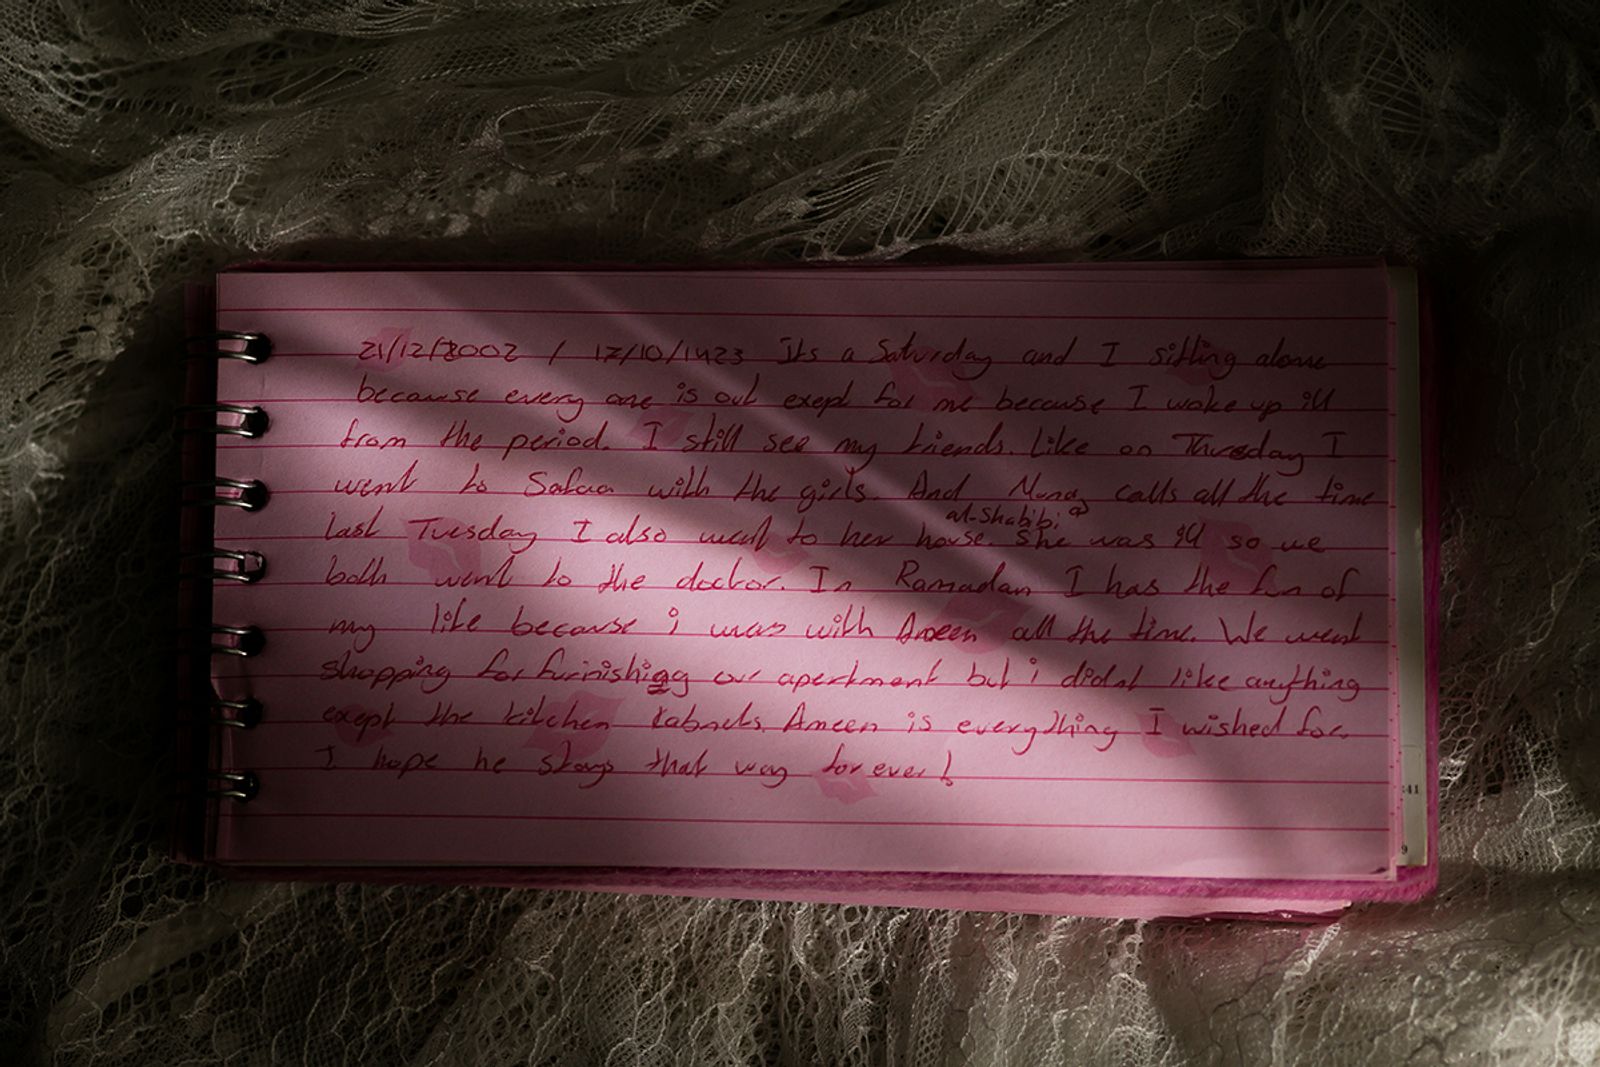 21/12/2002 / 17/10/1423 Its a Saturday and I sitting alone
because every one is out exept for me because I woke up ill
from the period. I still see my friends. Like on Thursday I
went to Safaa with the girls. And Muna calls all the time
al-Shabibi
last Tuesday I also went to her house. She was ill so we
both went to the doctor. In Ramadan I has the fun of
my life because i was with Ameen all the time. We went
shopping for furnishing our apertment but i didnt like anything
exept the kitchen kabnets. Ameen is everything I wished for.
I hope he stays that way for ever!
41
9